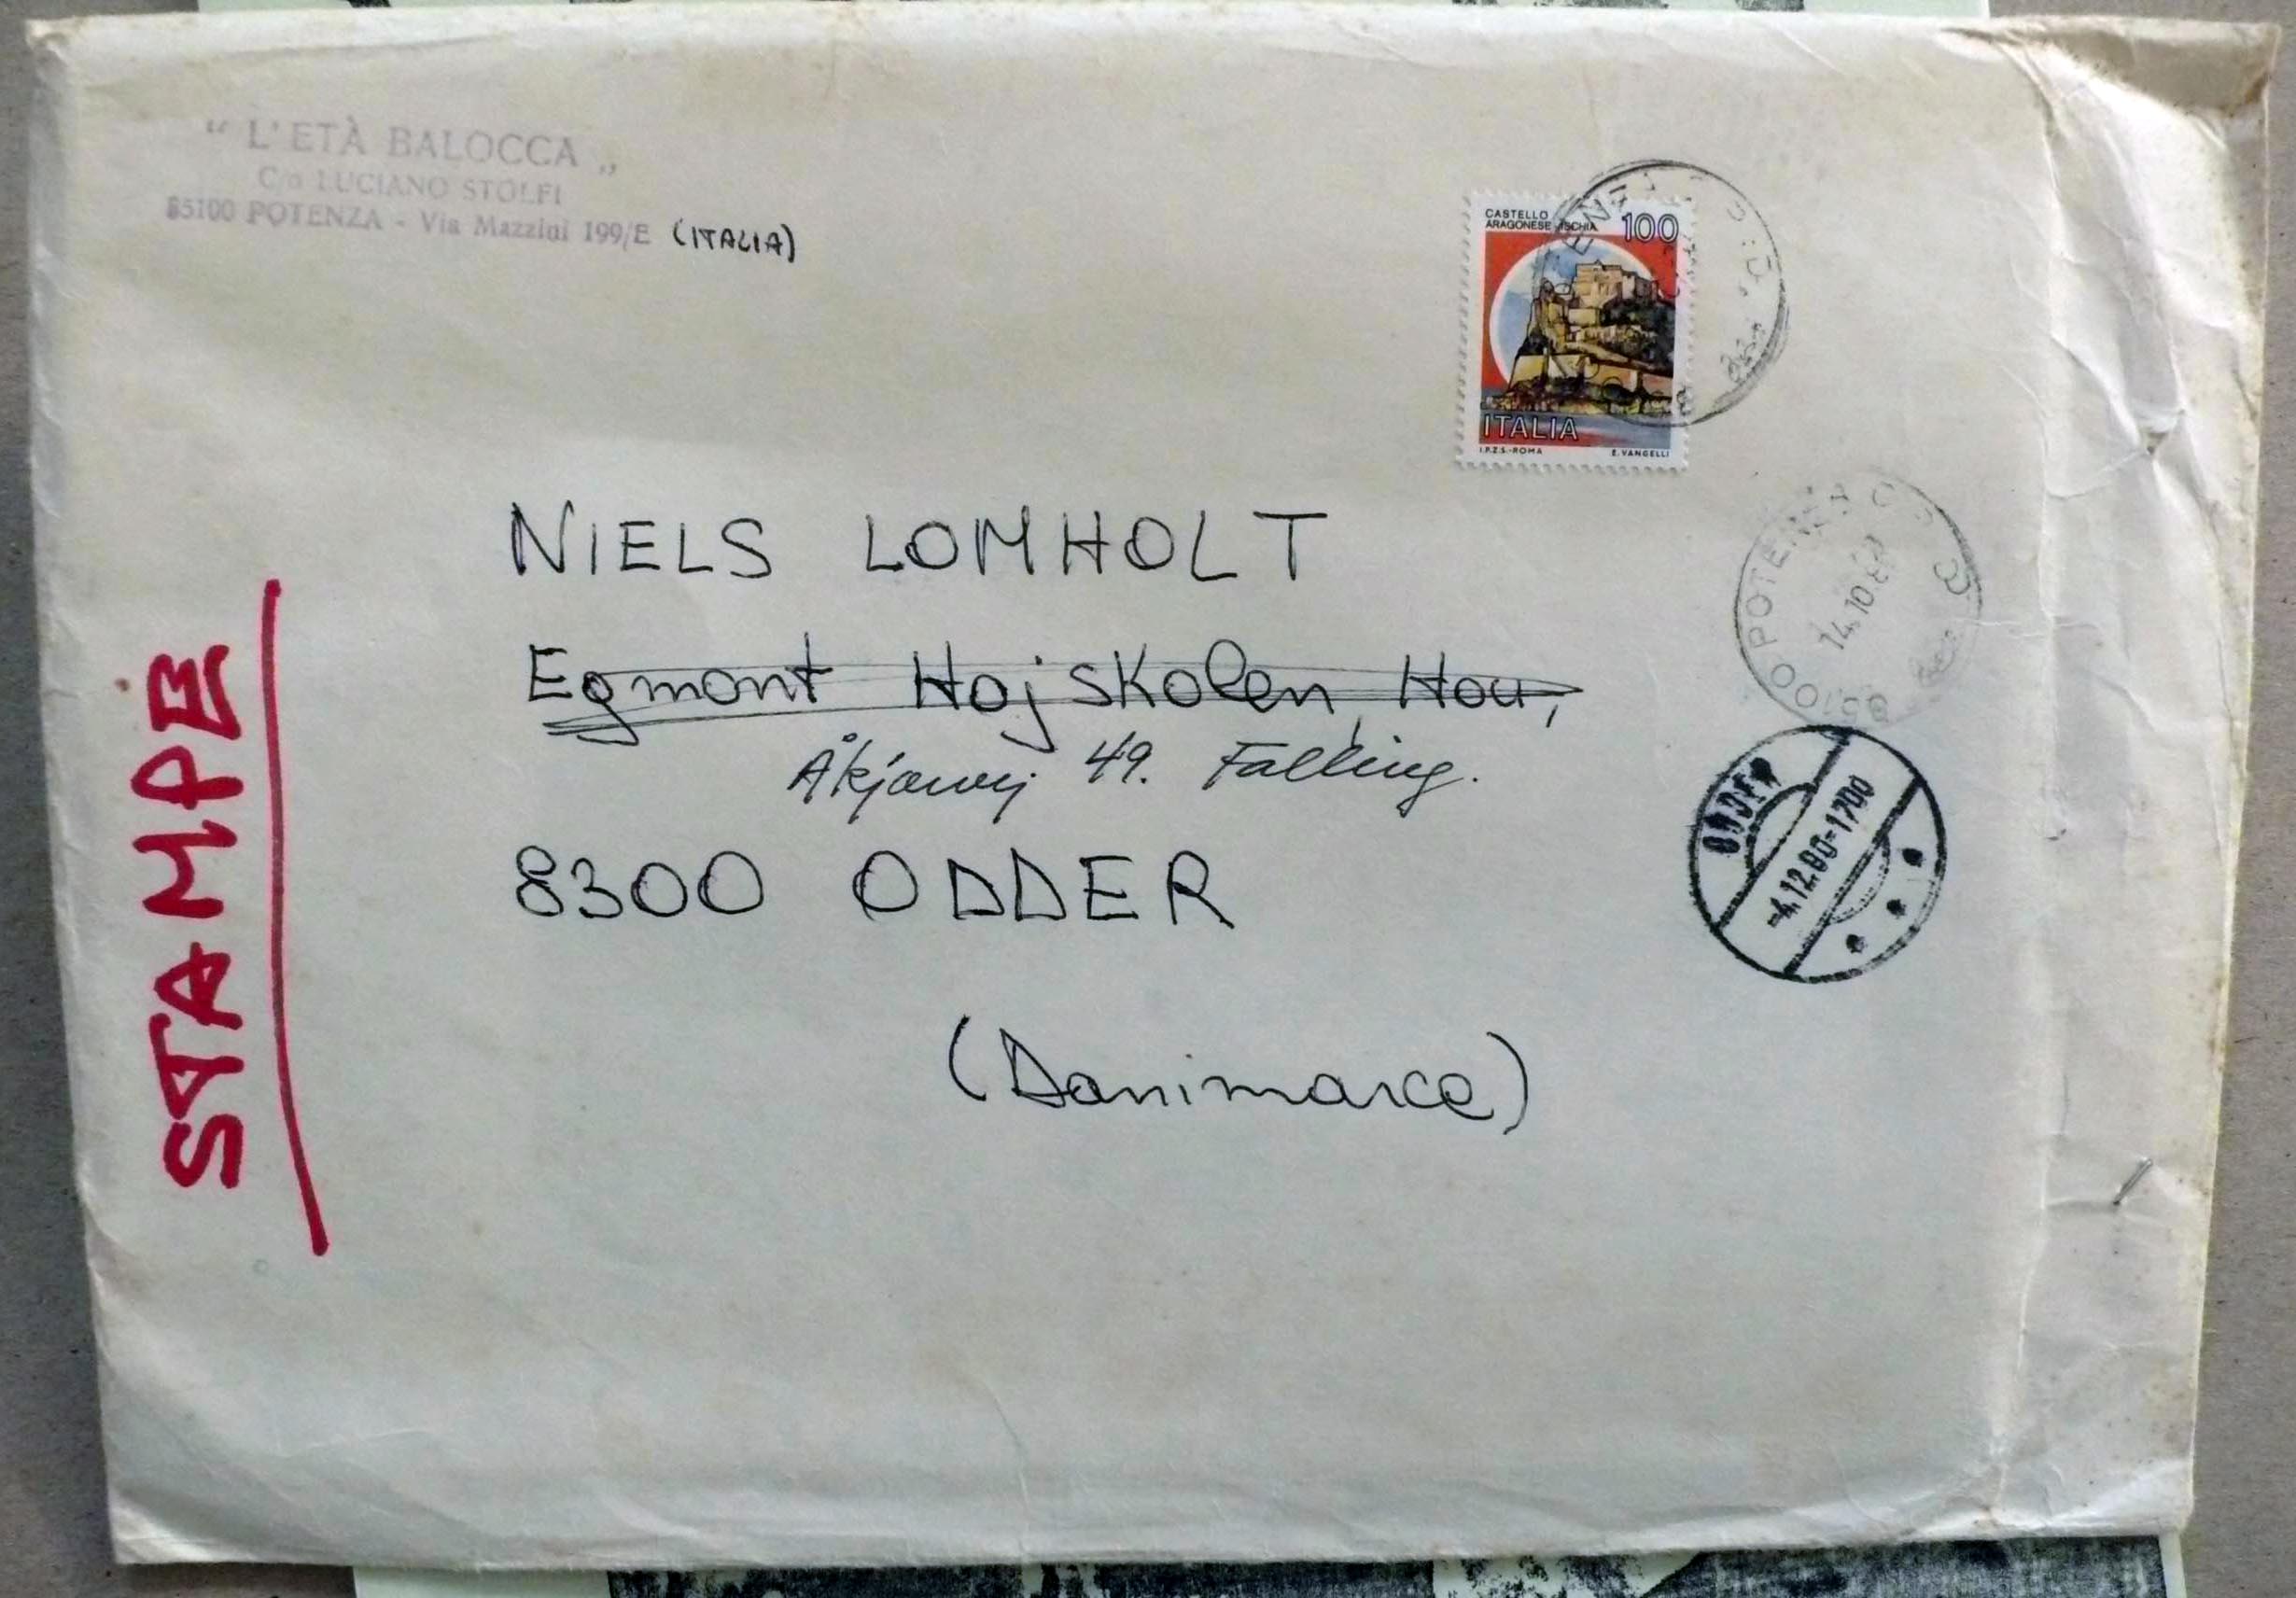 “ L'ETÀ BALOCCA „
C/o LUCIANO STOLFI
85100 POTENZA - Via Mazzini 199/E (ITALIA)
CASTELLO
ARAGONESE - ISCHIA
100
ITALIA
I.P.Z.S.-ROMA E. VANGELLI
NIELS LOMHOLT
Egmont Hojskolen, Hou,
Åkjærvej 49. Falling.
8300 ODDER
(Danimarca)
STAMPE
85100 POTENZA
14.10.80
ODDER
-4.12.80-1700